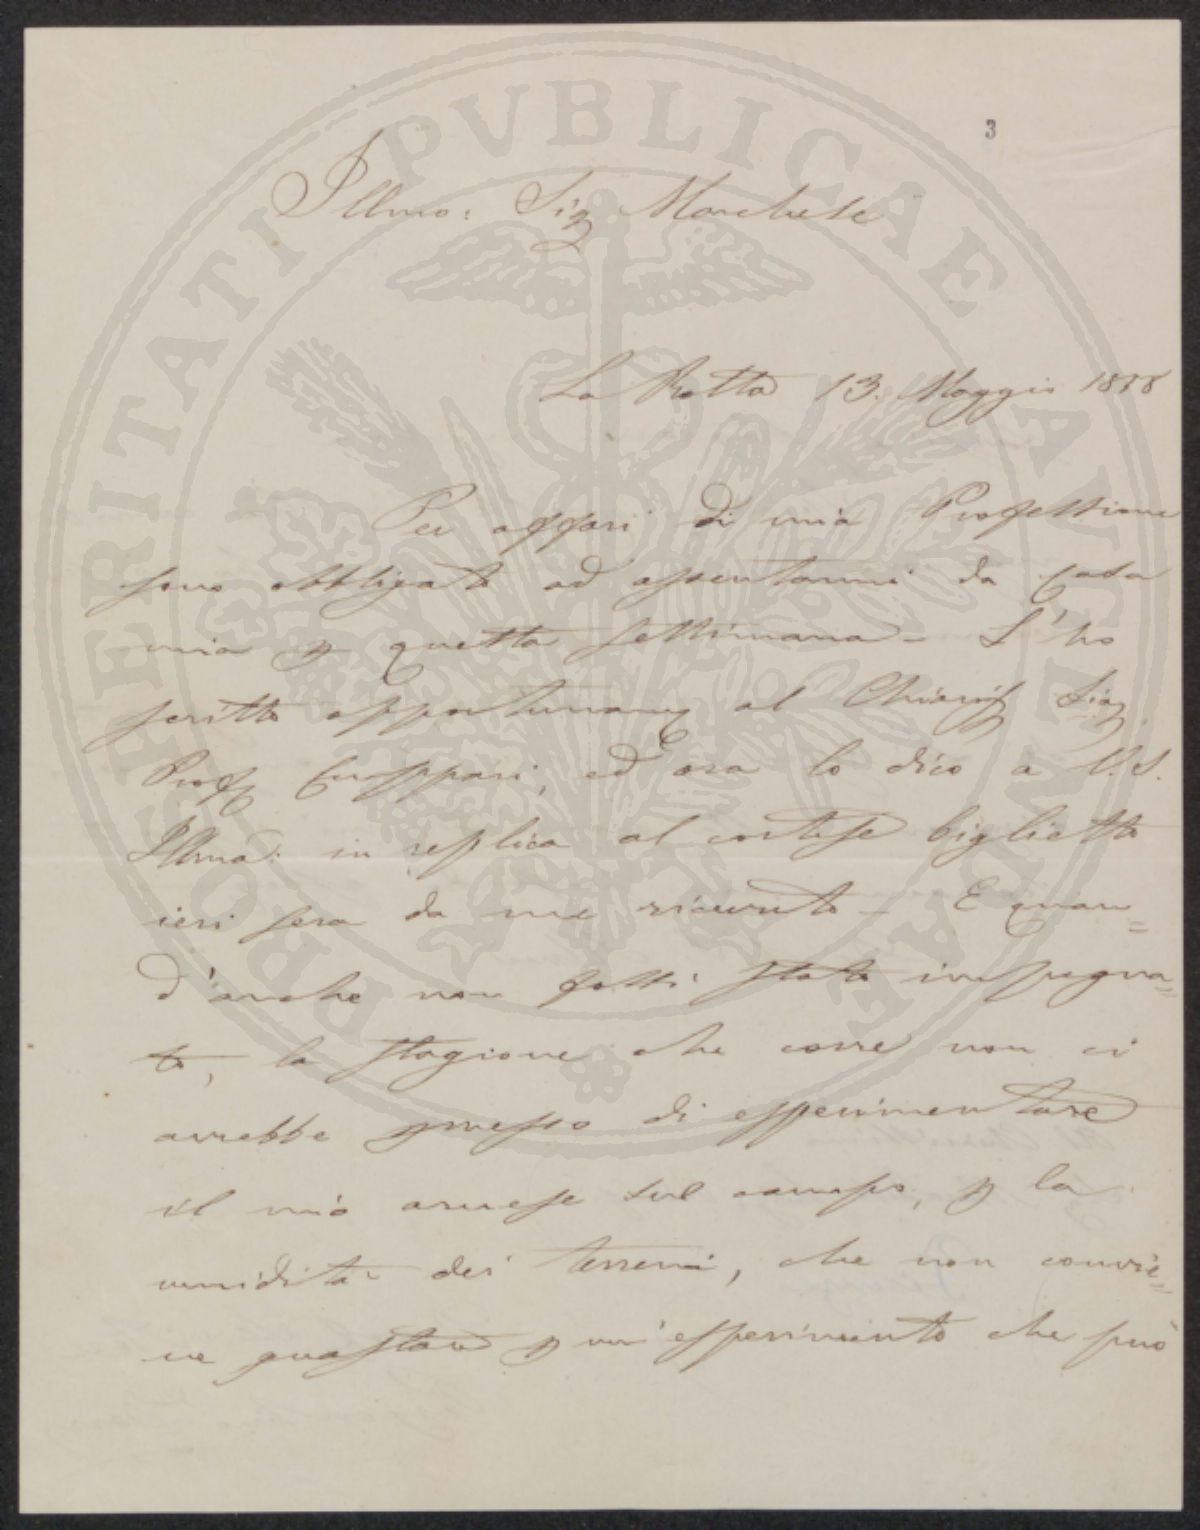 3
Illmo: Sig Marchese
La Rotta 13. Maggio 1858
Per affari di mia Professione
sono obbligato ad assentarmi da casa
mia p questa settimana – L'ho
scritto opportunam al Chiariss Sig
Prof Cuppari, ed ora lo dico a V.S.
Illma: in replica al cortese biglietto
ieri sera da me ricevuto – E quan=
d'anche non fossi stato impegna=
to, la stagione che corre non ci
avrebbe pmesso di esperimentare
il mio arnese sul campo, p la
umidità dei terreni, che non convie=
ne guastare p un'esperimento che può
PROSPERITATI PVBLICAE AVGENDAE